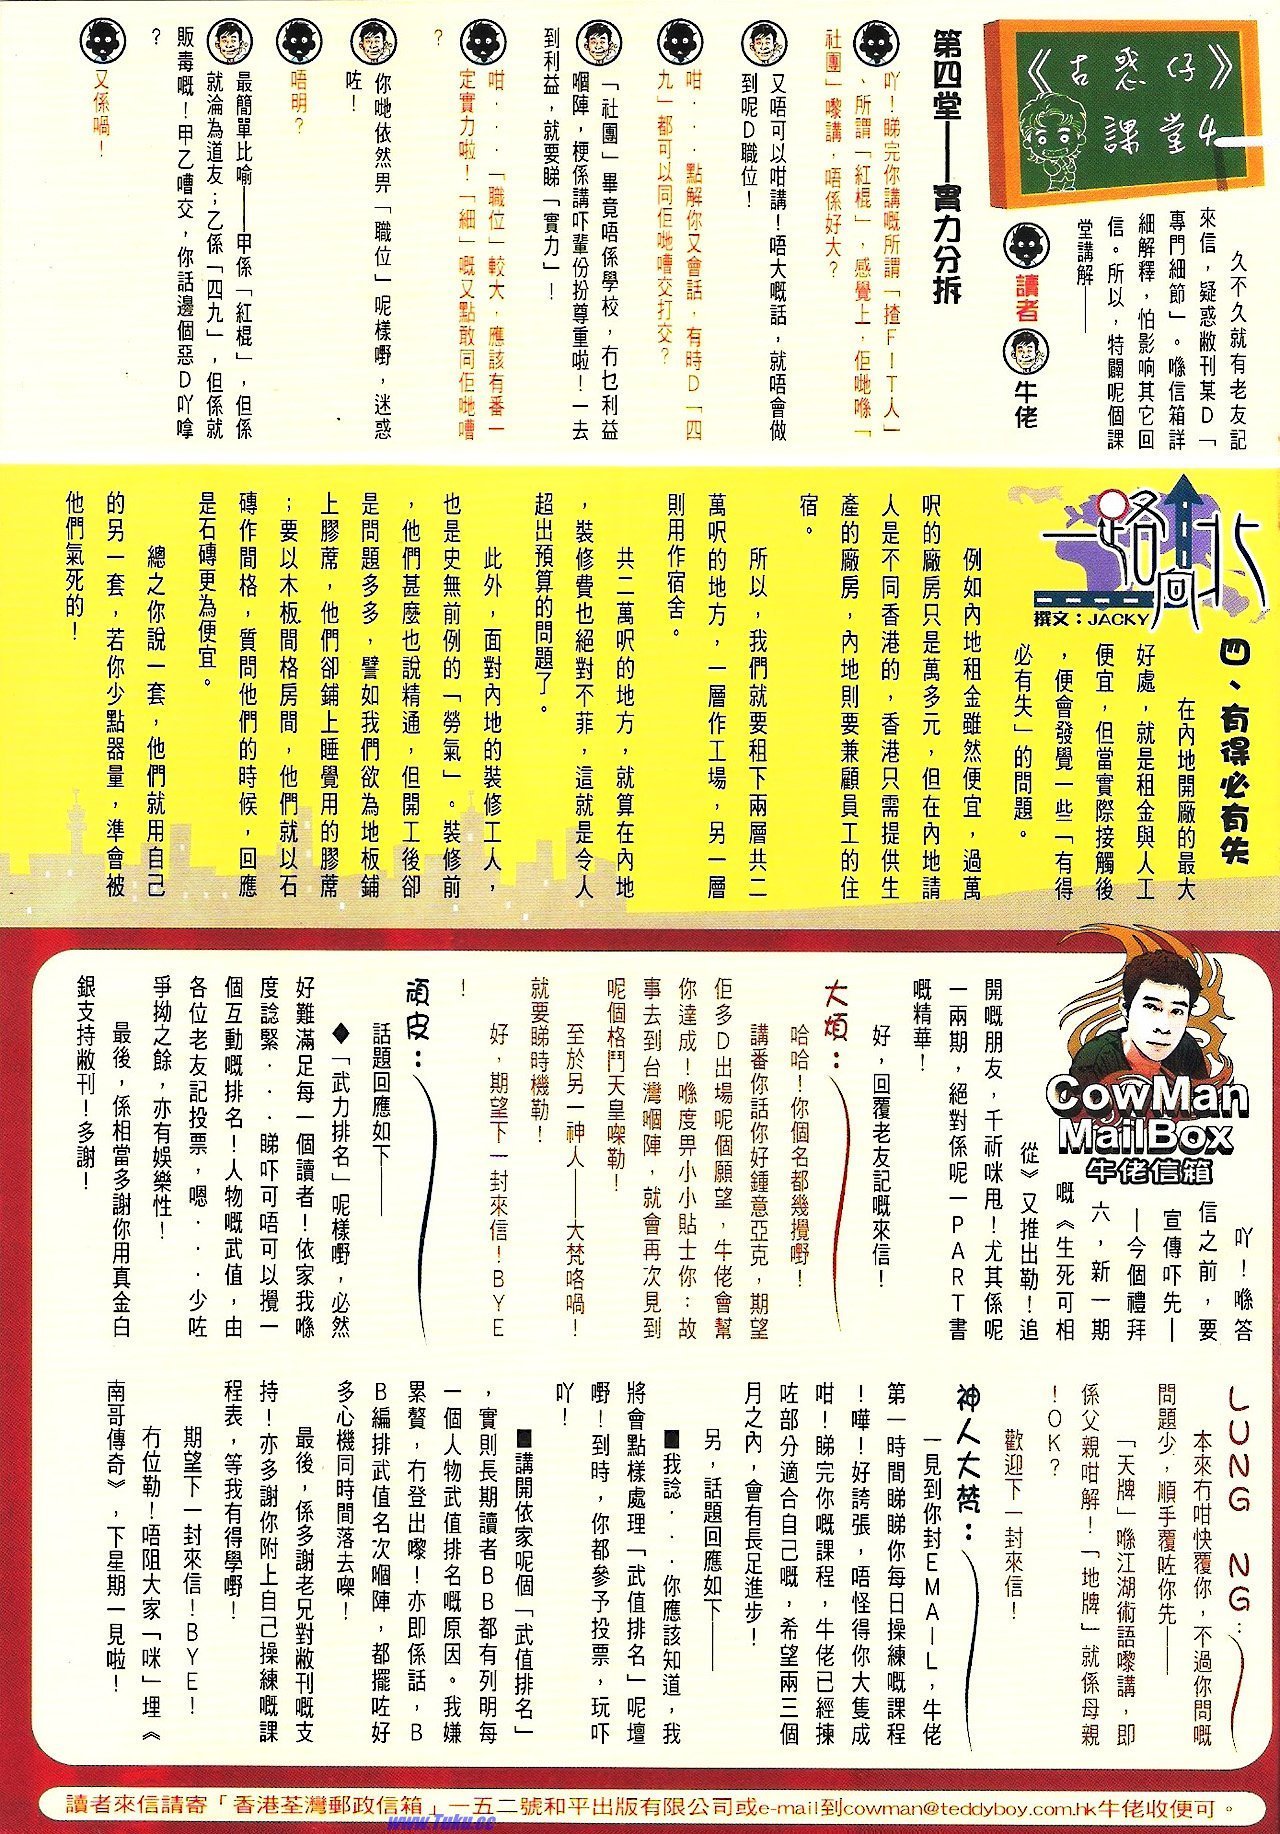 《古惑仔》
課堂4
久不久就有老友記
來信，疑惑敝刊某D「
專門細節」。喺信箱詳
細解釋，怕影响其它回
信。所以，特闢呢個課
堂講解——
讀者
牛佬
第四堂——實力分拆
吖！睇完你講嘅所謂「揸FIT人」
、所謂「紅棍」，感覺上，佢哋喺「
社團」嚟講，唔係好大？
又唔可以咁講！唔大嘅話，就唔會做
到呢D職位！
咁．．．點解你又會話，有時D「四
九」都可以同佢哋嘈交打交？
「社團」畢竟唔係學校，冇乜利益
嗰陣，梗係講吓輩份扮尊重啦！一去
到利益，就要睇「實力」！
咁．．．「職位」較大，應該有番一
定實力啦！「細」嘅又點敢同佢哋嘈
？
你哋依然畀「職位」呢樣嘢，迷惑
咗！
唔明？
最簡單比喻——甲係「紅棍」，但係
就淪為道友；乙係「四九」，但係就
販毒嘅！甲乙嘈交，你話邊個惡D吖嗱
？
又係喎！
一路向北
撰文：JACKY
四、有得必有失
在內地開廠的最大
好處，就是租金與人工
便宜，但當實際接觸後
，便會發覺一些「有得
必有失」的問題。
例如內地租金雖然便宜，過萬
呎的廠房只是萬多元，但在內地請
人是不同香港的，香港只需提供生
產的廠房，內地則要兼顧員工的住
宿。
所以，我們就要租下兩層共二
萬呎的地方，一層作工場，另一層
則用作宿舍。
共二萬呎的地方，就算在內地
，裝修費也絕對不菲，這就是令人
超出預算的問題了。
此外，面對內地的裝修工人，
也是史無前例的「勞氣」。裝修前
，他們甚麼也說精通，但開工後卻
是問題多多，譬如我們欲為地板鋪
上膠蓆，他們卻鋪上睡覺用的膠蓆
；要以木板間格房間，他們就以石
磚作間格，質問他們的時候，回應
是石磚更為便宜。
總之你說一套，他們就用自己
的另一套，若你少點器量，準會被
他們氣死的！
CowMan
MailBox
牛佬信箱
吖！喺答
信之前，要
宣傳吓先—
—今個禮拜
六，新一期
嘅《生死可相
從》又推出勒！追
開嘅朋友，千祈咪甩！尤其係呢
一兩期，絕對係呢一PART書
嘅精華！
好，回覆老友記嘅來信！
大煩：
哈哈！你個名都幾攪嘢！
講番你話你好鍾意亞克，期望
佢多D出場呢個願望，牛佬會幫
你達成！喺度畀小小貼士你：故
事去到台灣嗰陣，就會再次見到
呢個格鬥天皇㗎勒！
至於另一神人——大梵咯喎！
就要睇時機勒！
好，期望下一封來信！BYE
！
頑皮：
話題回應如下——
◆「武力排名」呢樣嘢，必然
好難滿足每一個讀者！依家我喺
度諗緊．．．睇吓可唔可以攪一
個互動嘅排名！人物嘅武值，由
各位老友記投票，嗯．．．少咗
爭拗之餘，亦有娛樂性！
最後，係相當多謝你用真金白
銀支持敝刊！多謝！
LUNG NG：
本來冇咁快覆你，不過你問嘅
問題少，順手覆咗你先——
「天牌」喺江湖術語嚟講，即
係父親咁解！「地牌」就係母親
！OK？
歡迎下一封來信！
神人大梵：
一見到你封EMAIL，牛佬
第一時間睇睇你每日操練嘅課程
！嘩！好誇張，唔怪得你大隻成
咁！睇完你嘅課程，牛佬已經揀
咗部分適合自己嘅，希望兩三個
月之內，會有長足進步！
另，話題回應如下——
■我諗．．．你應該知道，我
將會點樣處理「武值排名」呢壇
嘢！到時，你都參予投票，玩吓
吖！
■講開依家呢個「武值排名」
，實則長期讀者BB都有列明每
一個人物武值排名嘅原因。我嫌
累贅，冇登出嚟！亦即係話，B
B編排武值名次嗰陣，都擺咗好
多心機同時間落去㗎！
最後，係多謝老兄對敝刊嘅支
持！亦多謝你附上自己操練嘅課
程表，等我有得學嘢！
期望下一封來信！BYE！
冇位勒！唔阻大家「咪」埋《
南哥傳奇》，下星期一見啦！
讀者來信請寄「香港荃灣郵政信箱」一五二號和平出版有限公司或e-mail到cowman@teddyboy.com.hk牛佬收便可。
www.Tuku.cc